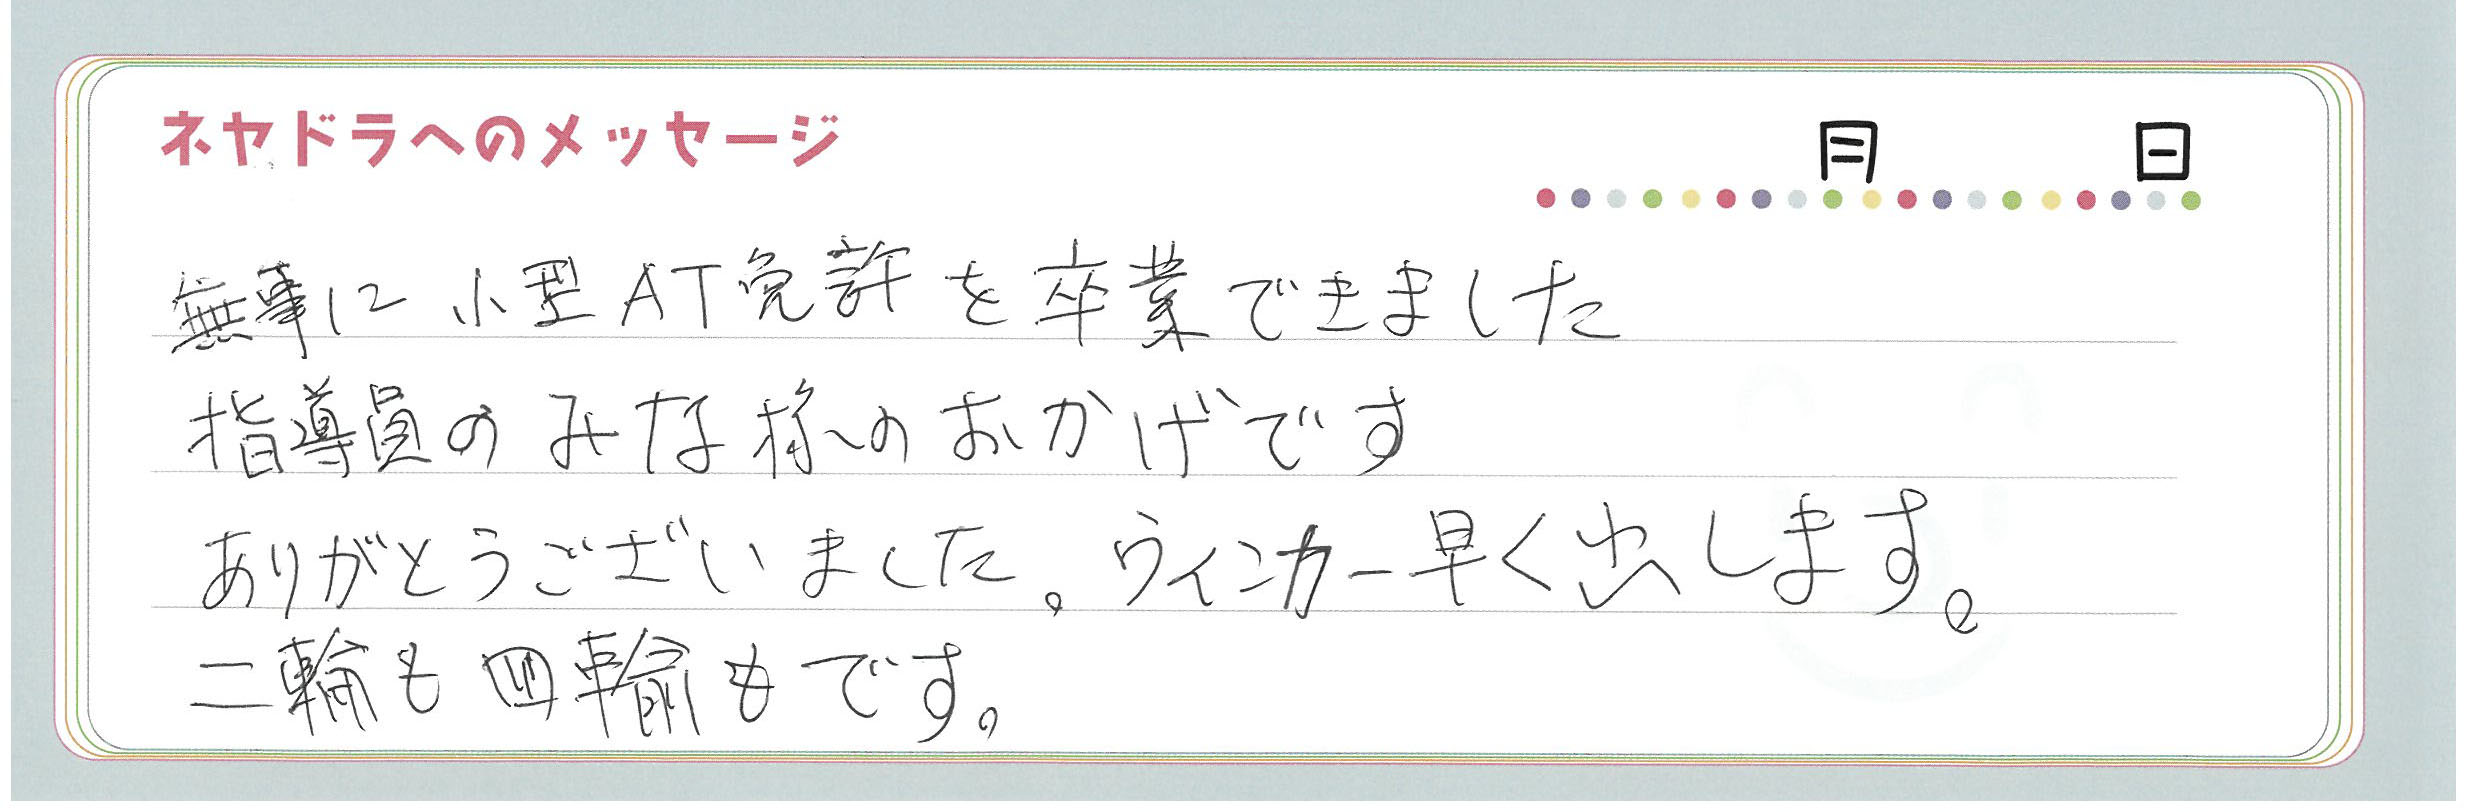 ネヤドラへのメッセージ
月 日
無事に小型AT免許を卒業できました
指導員のみな様のおかげです
ありがとうございました。ウインカー早く出します。
二輪も四輪もです。